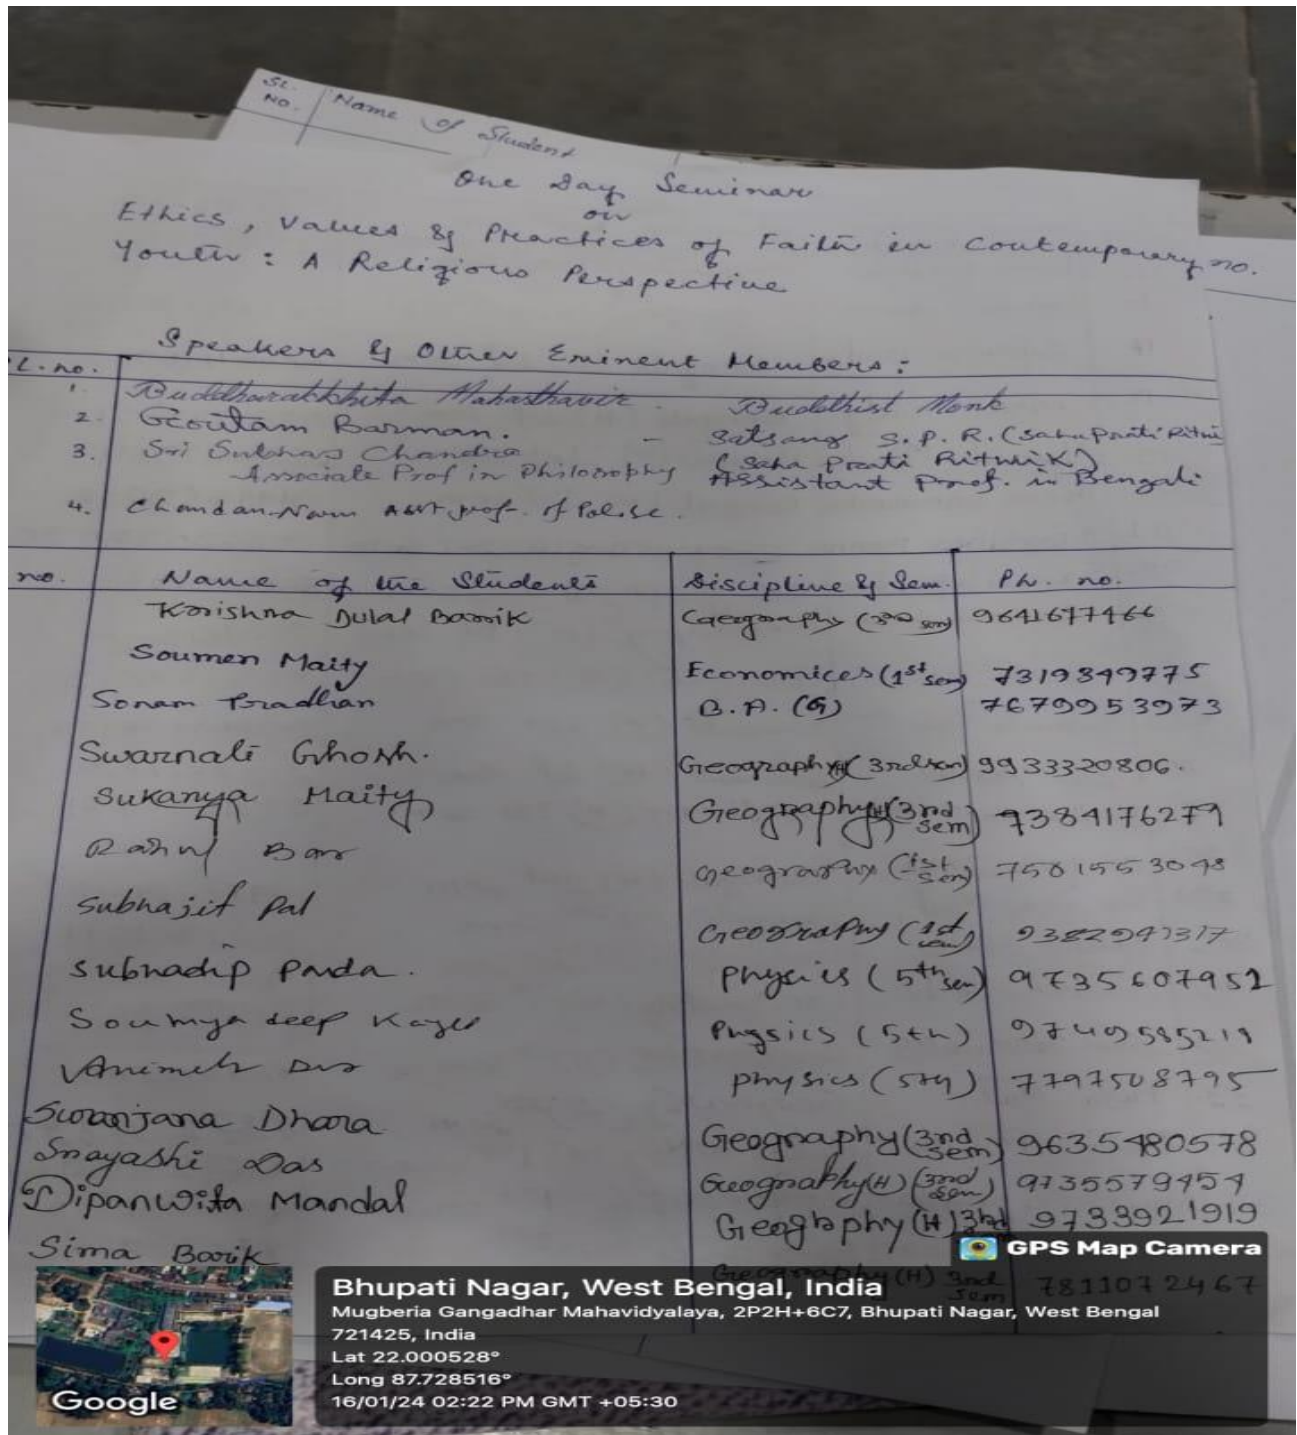 SL. NO. Name of Student
One Day Seminar
on
Ethics, Values & Practices of Faith in Contemporary no.
Youth: A Religious Perspective
Speakers & Other Eminent Members:
L. no.
1. Buddharakkhita Mahasthavir. Buddhist Monk
2. Goutam Barman. - Satsang S.P.R. (Saha Prati Ritwi
3. Sri Subhas Chandra (Saha Prati Ritwik)
Associate Prof in Philosophy Assistant Prof. in Bengali
4. Chandan Asst prof. of Pol.sc.
no. Name of the Students Discipline & Sem. Ph. no.
Korishna Dulal Barik Geography (3rd sem) 9641677466
Soumen Maity Economices (1st sem) 7319349775
Sonam Pradhan B.A. (G) 7679953973
Swarnali Ghosh. Geography (H) (3rd sem) 9933320806.
Sukanya Maity Geography (H) (3nd sem) 7384176279
Rahul Bar Geography (1st sem)
Subhajit Pal Geography (1st sem)
Subhadip Panda. Physics (5th sem) 9735607952
Soumyadeep Physics (5th) 9749585219
Animesh Das physics (5th) 7797508795
Suranjana Dhara Geography (3nd sem) 9635480578
Snayashi Das Geography (H) (3nd sem) 9735579454
Dipanwita Mandal Geography (H) 3nd 9733921919
Sima Barik Geography (H) 3nd sem 7811072467
GPS Map Camera
Bhupati Nagar, West Bengal, India
Mugberia Gangadhar Mahavidyalaya, 2P2H+6C7, Bhupati Nagar, West Bengal
721425, India
Lat 22.000528°
Long 87.728516°
16/01/24 02:22 PM GMT +05:30
Google